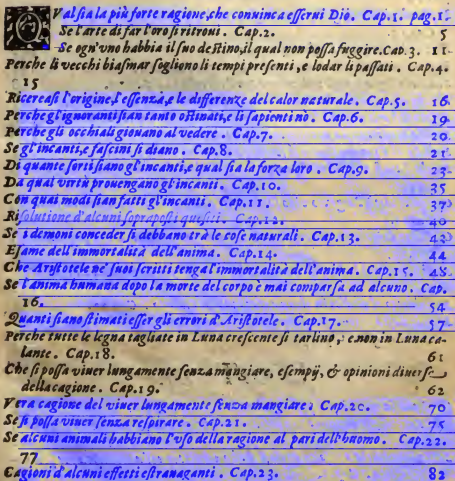 Qual sia la più forte ragione, che conuinca esserui Dio. Cap.1. pag.1.
Se l'arte di far l'oro si ritroui. Cap.2. 5
Se ogn'vno habbia il suo destino, il qual non possa fuggire. Cap.3. 11
Perche li vecchi biasmar sogliono li tempi presenti, e lodar li passati. Cap.4.
15
Ricercasi l'origine, l'essenza, e le differenze del calor naturale. Cap.5. 16.
Perche gl'ignoranti sian tanto ostinati, e li sapienti nò. Cap.6. 19.
Perche gli occhiali giouano al vedere. Cap.7. 20
Se gl'incanti, e fascini si diano. Cap.8. 21
Di quante sorti siano gl'incanti, e qual sia la forza loro. Cap.9. 23
Da qual virtù prouengano gl'incanti. Cap.10. 35
Con quai modi sian fatti gl'incanti. Cap.11. 37
Risolutione d'alcuni sopraposti quesiti. Cap.12. 40
Se i demoni conceder si debbano trà le cose naturali. Cap.13. 43
Esame dell'immortalità dell'anima. Cap.14. 44
Che Aristotele ne' suoi scritti tenga l'immortalità dell'anima. Cap.15. 48
Se l'anima humana dopo la morte del corpo è mai comparsa ad alcuno. Cap.
16. 54
Quanti siano stimati esser gli errori d'Aristotele. Cap.17. 57
Perche tutte le legna tagliate in Luna crescente si tarlino, e non in Luna ca-
lante. Cap.18. 61
Che si possa viuer lungamente senza mangiare, esempij, & opinioni diuerse
della cagione. Cap.19. 62
Vera cagione del viuer lungamente senza mangiare. Cap.20. 70
Se si possa viuer senza respirare. Cap.21. 75
Se alcuni animali habbiano l'vso della ragione al pari dell'huomo. Cap.22.
77
Cagioni d'alcuni effetti estrauaganti. Cap.23. 82